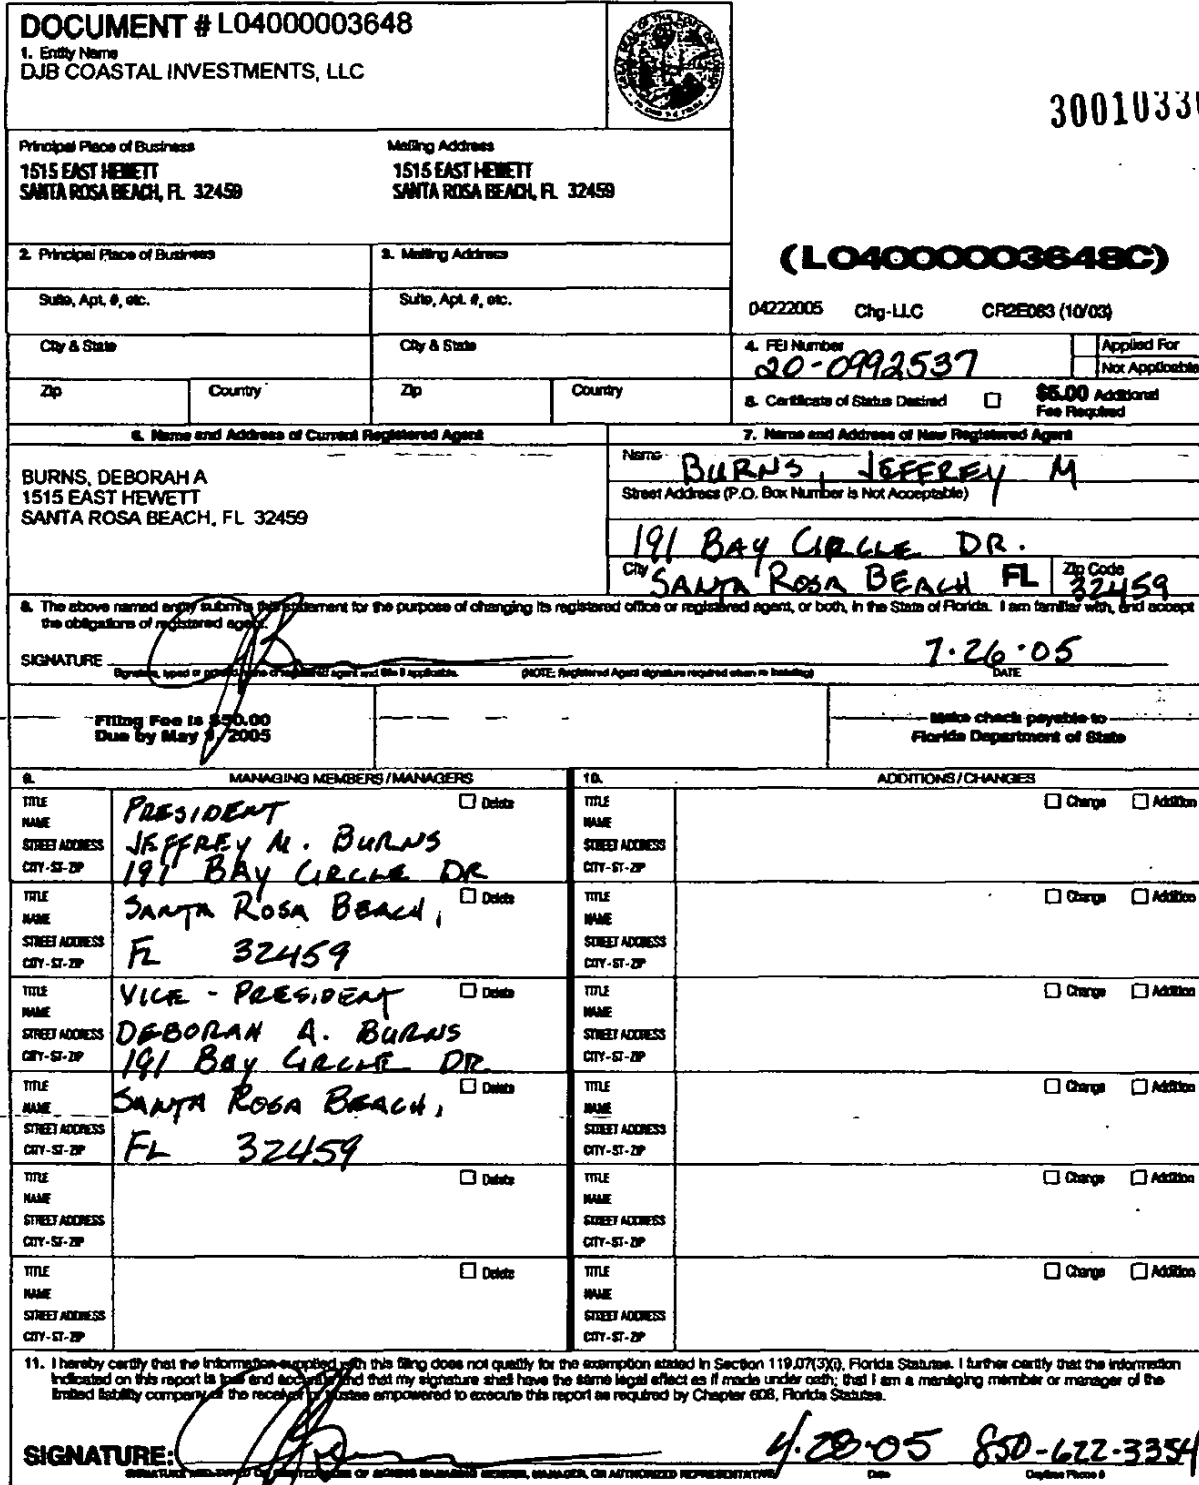 DOCUMENT # L04000003648
1. Entity Name
DJB COASTAL INVESTMENTS, LLC
3001033
Principal Place of Business
1515 EAST HEWETT
SANTA ROSA BEACH, FL 32459
Mailing Address
1515 EAST HEWETT
SANTA ROSA BEACH, FL 32459
2. Principal Place of Business
3. Mailing Address
(L04000003648C)
Suite, Apt. #, etc.
Suite, Apt. #, etc.
04222005 Chg-LLC CR2E083 (10/03)
City & State
City & State
4. FEI Number
20-0992537
Applied For
Not Applicable
Zip Country
Zip Country
5. Certificate of Status Desired
$5.00 Additional
Fee Required
6. Name and Address of Current Registered Agent
BURNS, DEBORAH A
1515 EAST HEWETT
SANTA ROSA BEACH, FL 32459
7. Name and Address of New Registered Agent
Name BURNS, JEFFREY M
Street Address (P.O. Box Number is Not Acceptable)
191 BAY CIRCLE DR.
City SANTA ROSA BEACH FL Zip Code 32459
8. The above named entity submits this statement for the purpose of changing its registered office or registered agent, or both, in the State of Florida. I am familiar with, and accept
the obligations of registered agent.
SIGNATURE 7.26.05
Signature, typed or printed name of registered agent and title if applicable. (NOTE: Registered Agent signature required when reinstating) DATE
Filing Fee is $50.00
Due by May 1, 2005
Make check payable to
Florida Department of State
9. MANAGING MEMBERS/MANAGERS
10. ADDITIONS/CHANGES
TITLE PRESIDENT Delete
NAME JEFFREY M. BURNS
STREET ADDRESS 191 BAY CIRCLE DR
CITY-ST-ZIP
TITLE Change Addition
NAME
STREET ADDRESS
CITY-ST-ZIP
TITLE SANTA ROSA BEACH, Delete
NAME
STREET ADDRESS FL 32459
CITY-ST-ZIP
TITLE Change Addition
NAME
STREET ADDRESS
CITY-ST-ZIP
TITLE VICE-PRESIDENT Delete
NAME
STREET ADDRESS DEBORAH A. BURNS
CITY-ST-ZIP 191 BAY CIRCLE DR
TITLE Change Addition
NAME
STREET ADDRESS
CITY-ST-ZIP
TITLE SANTA ROSA BEACH, Delete
NAME
STREET ADDRESS FL 32459
CITY-ST-ZIP
TITLE Change Addition
NAME
STREET ADDRESS
CITY-ST-ZIP
TITLE Delete
NAME
STREET ADDRESS
CITY-ST-ZIP
TITLE Change Addition
NAME
STREET ADDRESS
CITY-ST-ZIP
TITLE Delete
NAME
STREET ADDRESS
CITY-ST-ZIP
TITLE Change Addition
NAME
STREET ADDRESS
CITY-ST-ZIP
11. I hereby certify that the information supplied with this filing does not qualify for the exemption stated in Section 119.07(3)(i), Florida Statutes. I further certify that the information
indicated on this report is true and accurate and that my signature shall have the same legal effect as if made under oath; that I am a managing member or manager of the
limited liability company or the receiver or trustee empowered to execute this report as required by Chapter 608, Florida Statutes.
SIGNATURE: 4.28.05 850-622-3354
SIGNATURE AND TYPED OR PRINTED NAME OF SIGNING MANAGING MEMBER, MANAGER, OR AUTHORIZED REPRESENTATIVE Date Daytime Phone #